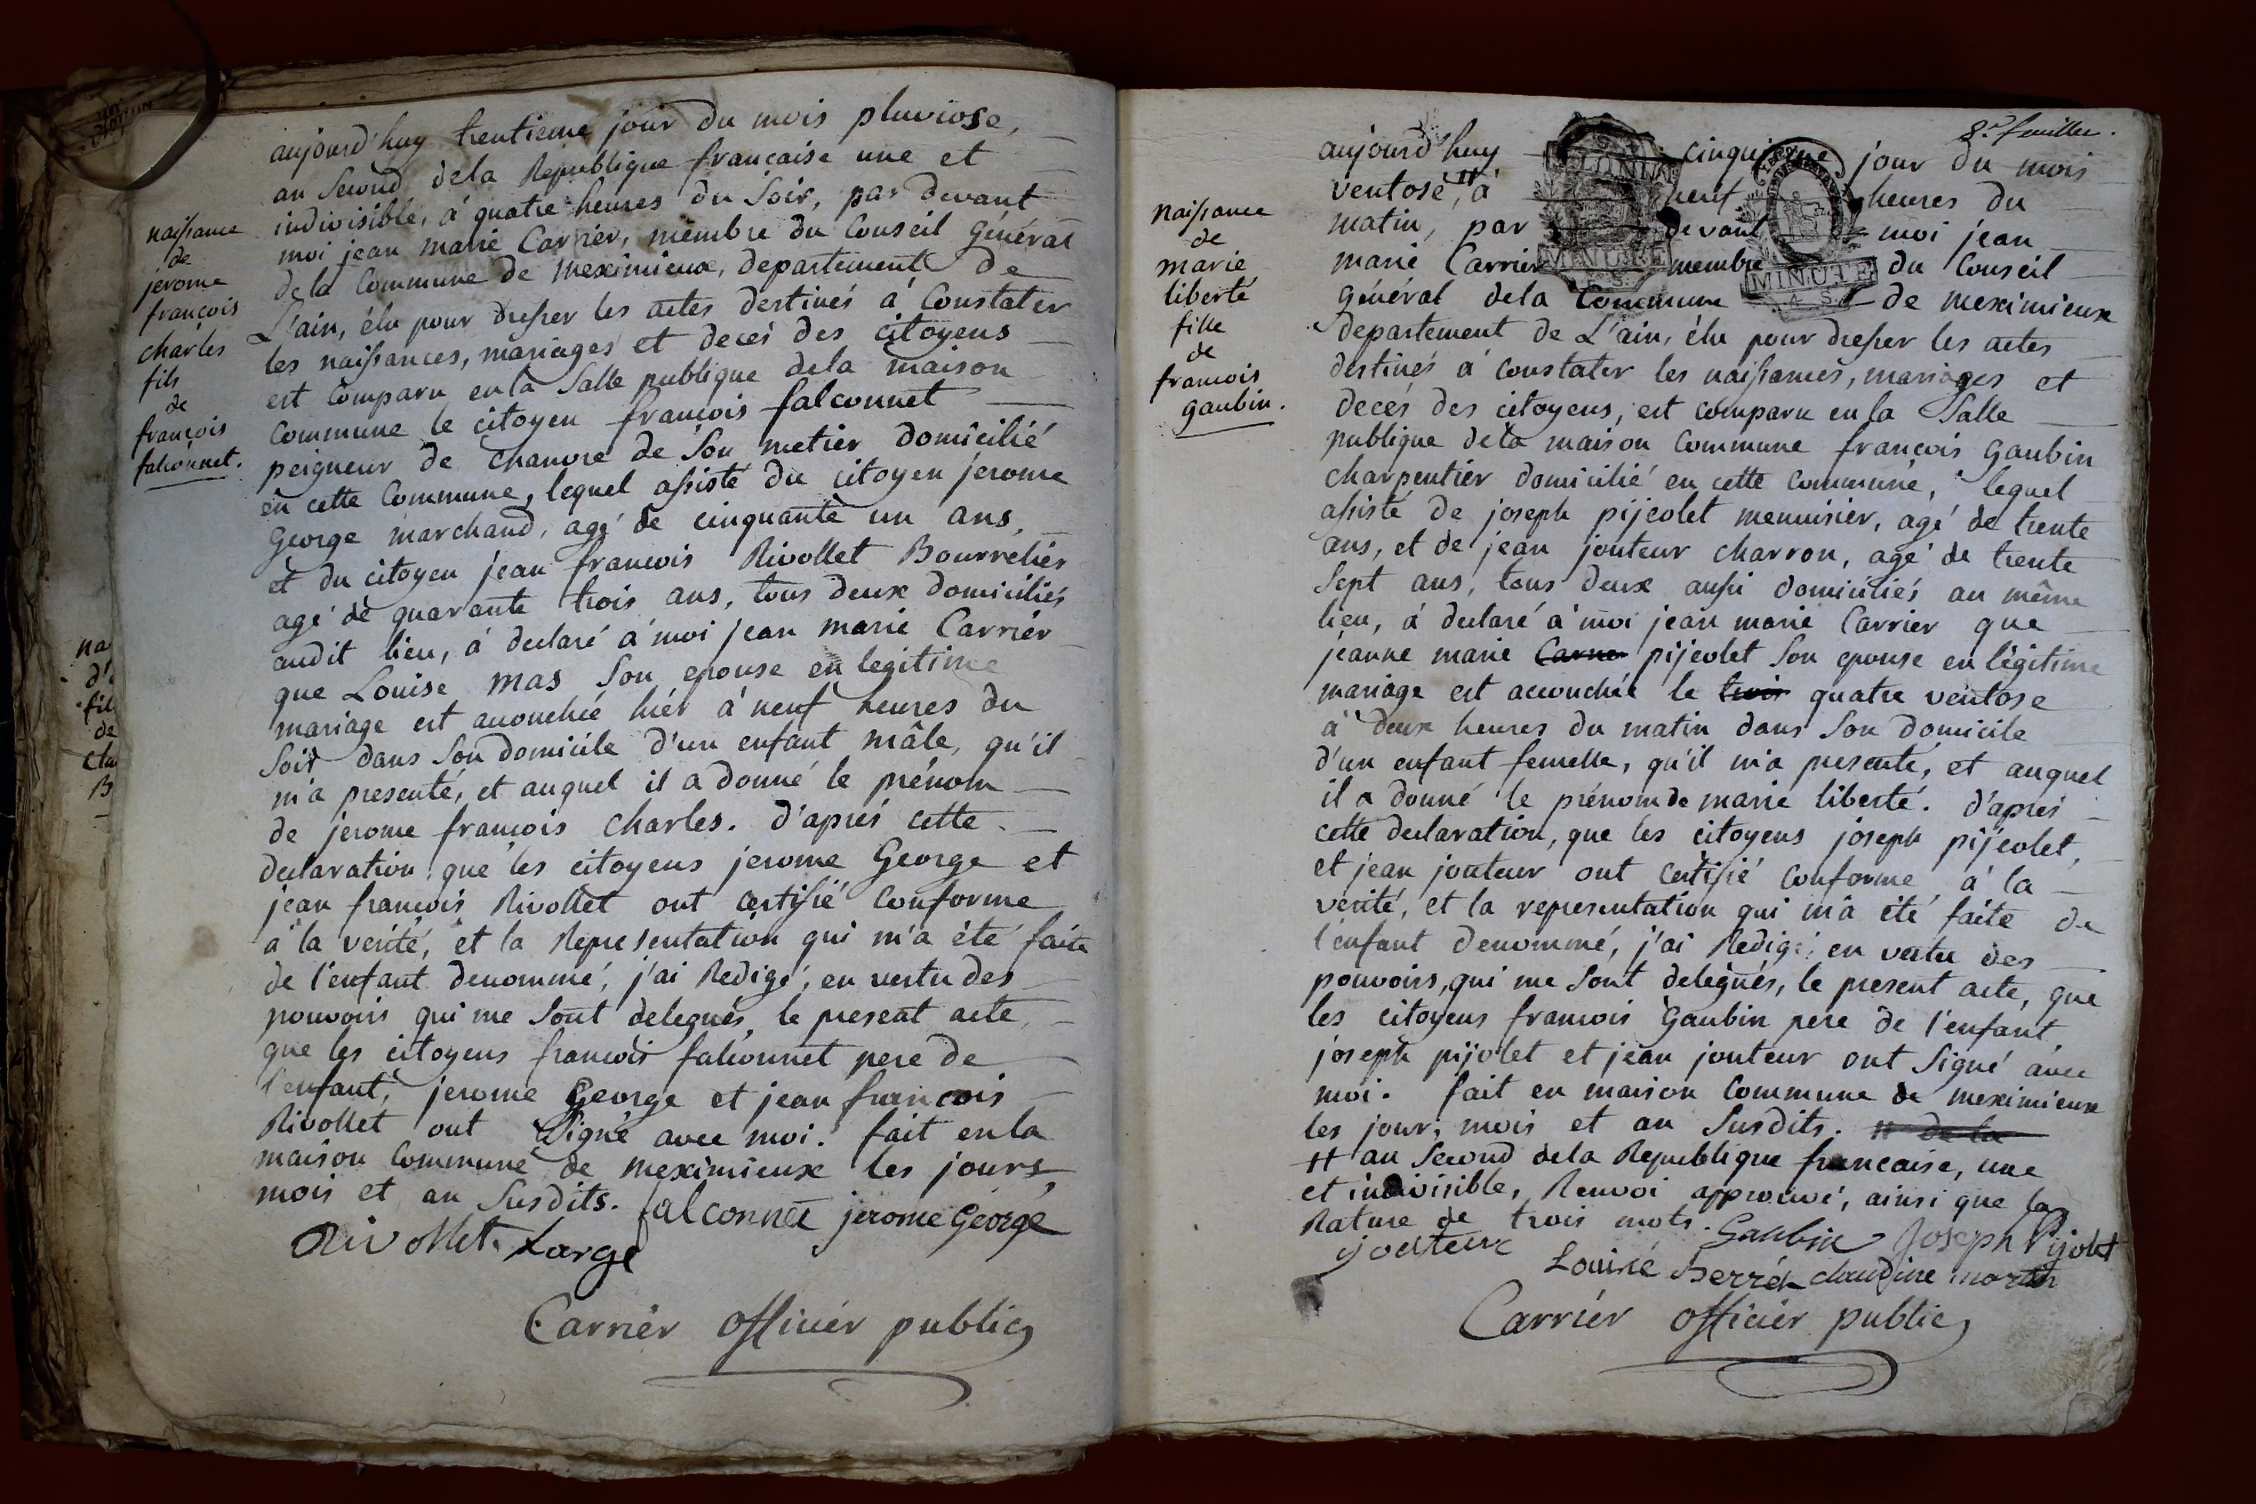 naissance
de
jerome
francois
charles
fils
de
francois
falconnet.
aujourd'huy trentieme jour du mois pluviose,
an second dela Republique francaise une et
indivisible, á quatre heures du soir, par devant
moi jean marie Carrier, membre du Conseil Général
dela Commune de meximieux, departement de
L'ain, élu pour dresser les actes destinés á Constater
les naissances, mariages et decés des citoyens
est comparu en la salle publique dela maison
commune le citoyen francois falconnet
peigneur de chanvre de son metier domicilié
en cette Commune, lequel assisté du citoyen jerome
George marchand, agé de cinquante un ans,
et du citoyen jean francois Rivollet Bourrelier
agé de quarante trois ans, tous deux domiciliés
audit lieu, á declaré á moi jean marie Carrier
que Louise mas son epouse en legitime
mariage est accouchée hiér á neuf heures du
soir dans son domicile d'un enfant mâle, qu'il
m'a presenté, et auquel il a donné le prénom
de jerome francois charles. d'aprés cette
declaration que les citoyens jerome George et
jean francois Rivollet ont certifié conforme
á la verité, et la Representation qui m'a été faite
de l'enfant denommé, j'ai Redigé, en vertu des
pouvoirs qui me sont delegués, le present acte,
que les citoyens francois falconnet pere de
l'enfant, jerome George et jean francois
Rivollet ont signé avec moi. fait en la
maison commune de meximieux les jours,
mois et an susdits. falconnet jerome George
Rivollet. Large
Carriér officiér public
8.e feuillet.
naissance
de
marie
liberté
fille
de
francois
gaubin.
aujourd'huy cinquieme jour du mois
ventose, # á neuf heures du
matin, par devant moi jean
marie Carrier membre du Conseil
Général dela Commune de meximieux
MINUTE
MINUTE
departement de L'ain, élu pour dresser les actes
destinés á constater les naissances, mariages et
decés des citoyens, est comparu en la salle
publique dela maison Commune francois Gaubin
charpentier domicilié en cette commune, lequel
assisté de joseph pijeolet menuisier, agé de trente
ans, et de jean jouteur charron, agé de trente
sept ans, tous deux aussi domiciliés au même
lieu, á declaré á moi jean marie Carrier que
jeanne marie pijeolet son epouse en légitime
mariage est accouchée le trois quatre ventose
á deux heures du matin dans son domicile
d'un enfant femelle, qu'il m'a presenté, et auquel
il a donné le prénom de marie liberté. d'aprés
cette declaration, que les citoyens joseph pijeolet,
et jean jouteur ont certifié conforme á la
verité, et la representation qui m'a été faite de
l'enfant denommé, j'ai Redigé, en vertu des
pouvoirs, qui me sont delegués, le present acte, que
les citoyens francois Gaubin pere de l'enfant,
joseph pijolet et jean jouteur ont signé avec
moi. fait en maison Commune de meximieux
les jour, mois et an susdits. # de la
# an second dela Republique francaise, une
et indivisible, Renvoi approuvé, ainsi que la
Rature de trois mots. Gaubin Joseph Pijolet
jouteur Louise claudine
Carriér officiér public